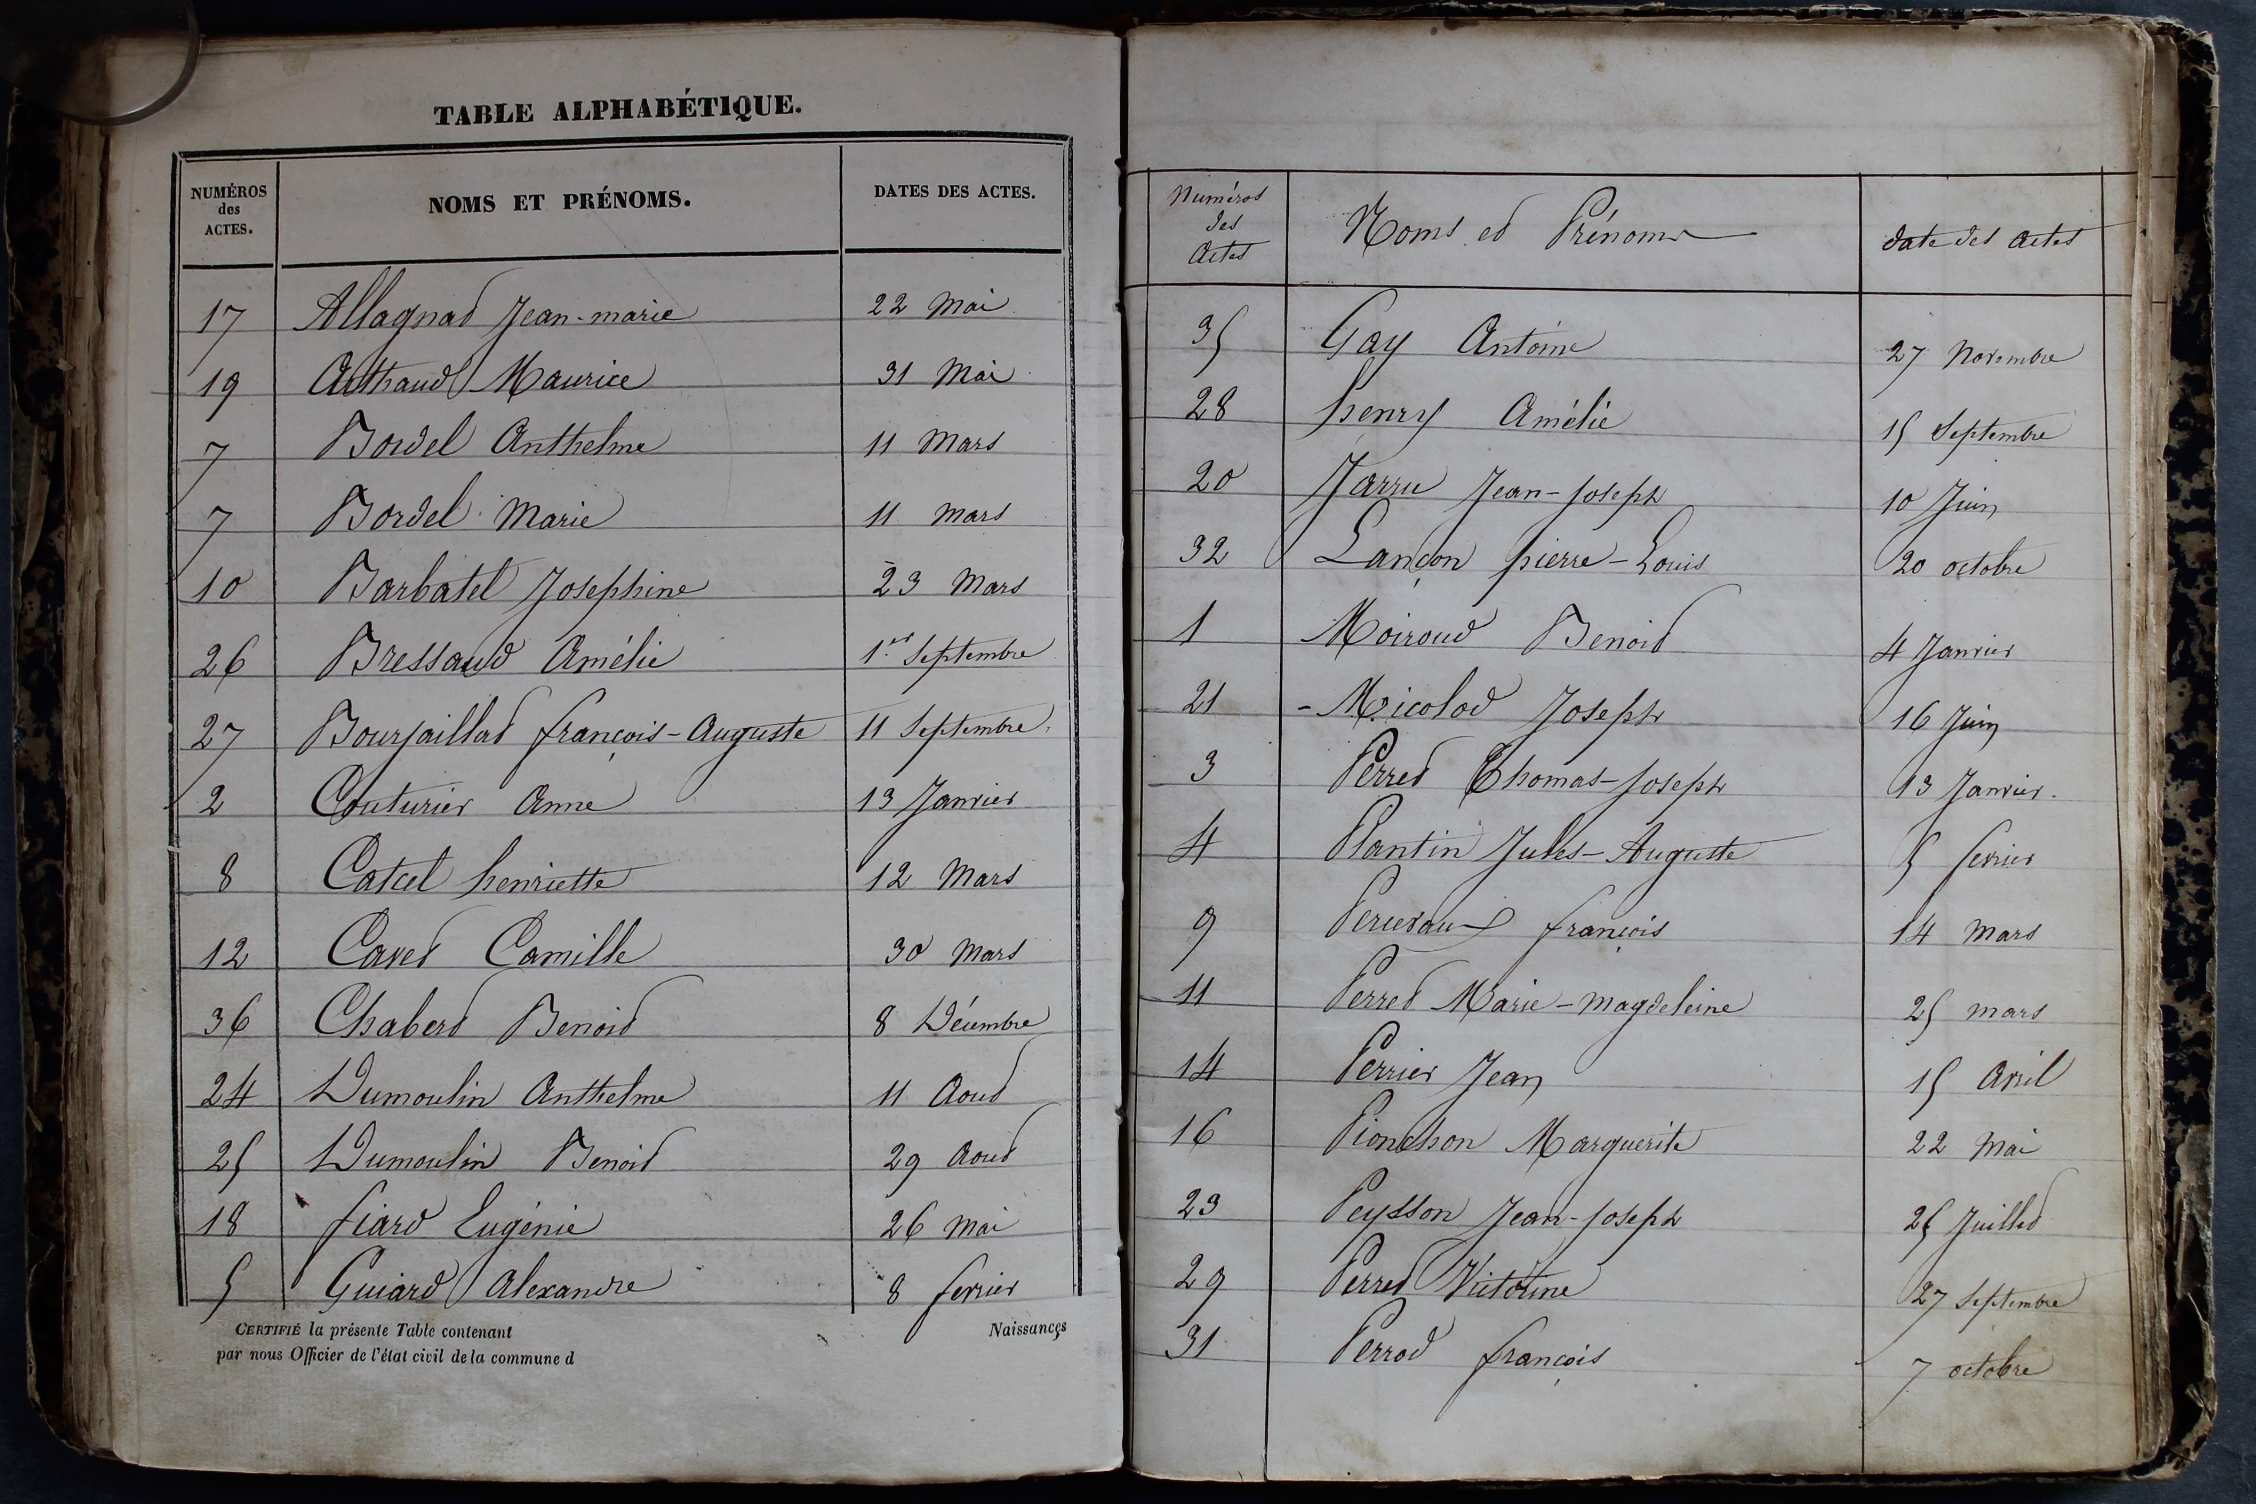 TABLE ALPHABÉTIQUE.
NUMÉROS des ACTES. NOMS ET PRÉNOMS. DATES DES ACTES.
17 Allagnat Jean-marie 22 Mai
19 Arthaud Maurice 31 Mai
7 Bordel Anthelme 11 Mars
7 Bordel Marie 11 Mars
10 Barbatel Josephine 23 Mars
26 Bressaud Amélie 1er Septembre
27 Bourjaillat françois-Auguste 11 Septembre
2 Couturier Anne 13 Janvier
8 Catcel henriette 12 Mars
12 Cavet Camille 30 Mars
36 Chabert Benoit 8 Décembre
24 Dumoulin Anthelme 11 Aout
25 Dumoulin Benoit 29 Aout
18 fiard Eugénie 26 Mai
5 Guiard Alexandre 8 fevrier
CERTIFIÉ la présente Table contenant Naissances
par nous Officier de l'état civil de la commune d
Numéros des Actes Noms et Prénoms date des actes
35 Gay Antoine 27 Novembre
28 henry Amélie 15 Septembre
20 Jarru Jean-Joseph 10 Juin
32 Lançon pierre-Louis 20 octobre
1 Moiroud Benoit 4 Janvier
21 - Micolod Joseph 16 Juin
3 Perret Thomas-Joseph 13 Janvier.
4 Plantin Jules-Auguste 5 fevrier
9 Percevaux françois 14 Mars
11 Perret Marie-Magdeleine 25 mars
14 Perrier Jean 15 Avril
16 Pionchon Marguerite 22 Mai
23 Peysson Jean-Joseph 25 Juillet
29 Perret Victorine 27 Septembre
31 Perrod françois 7 octobre